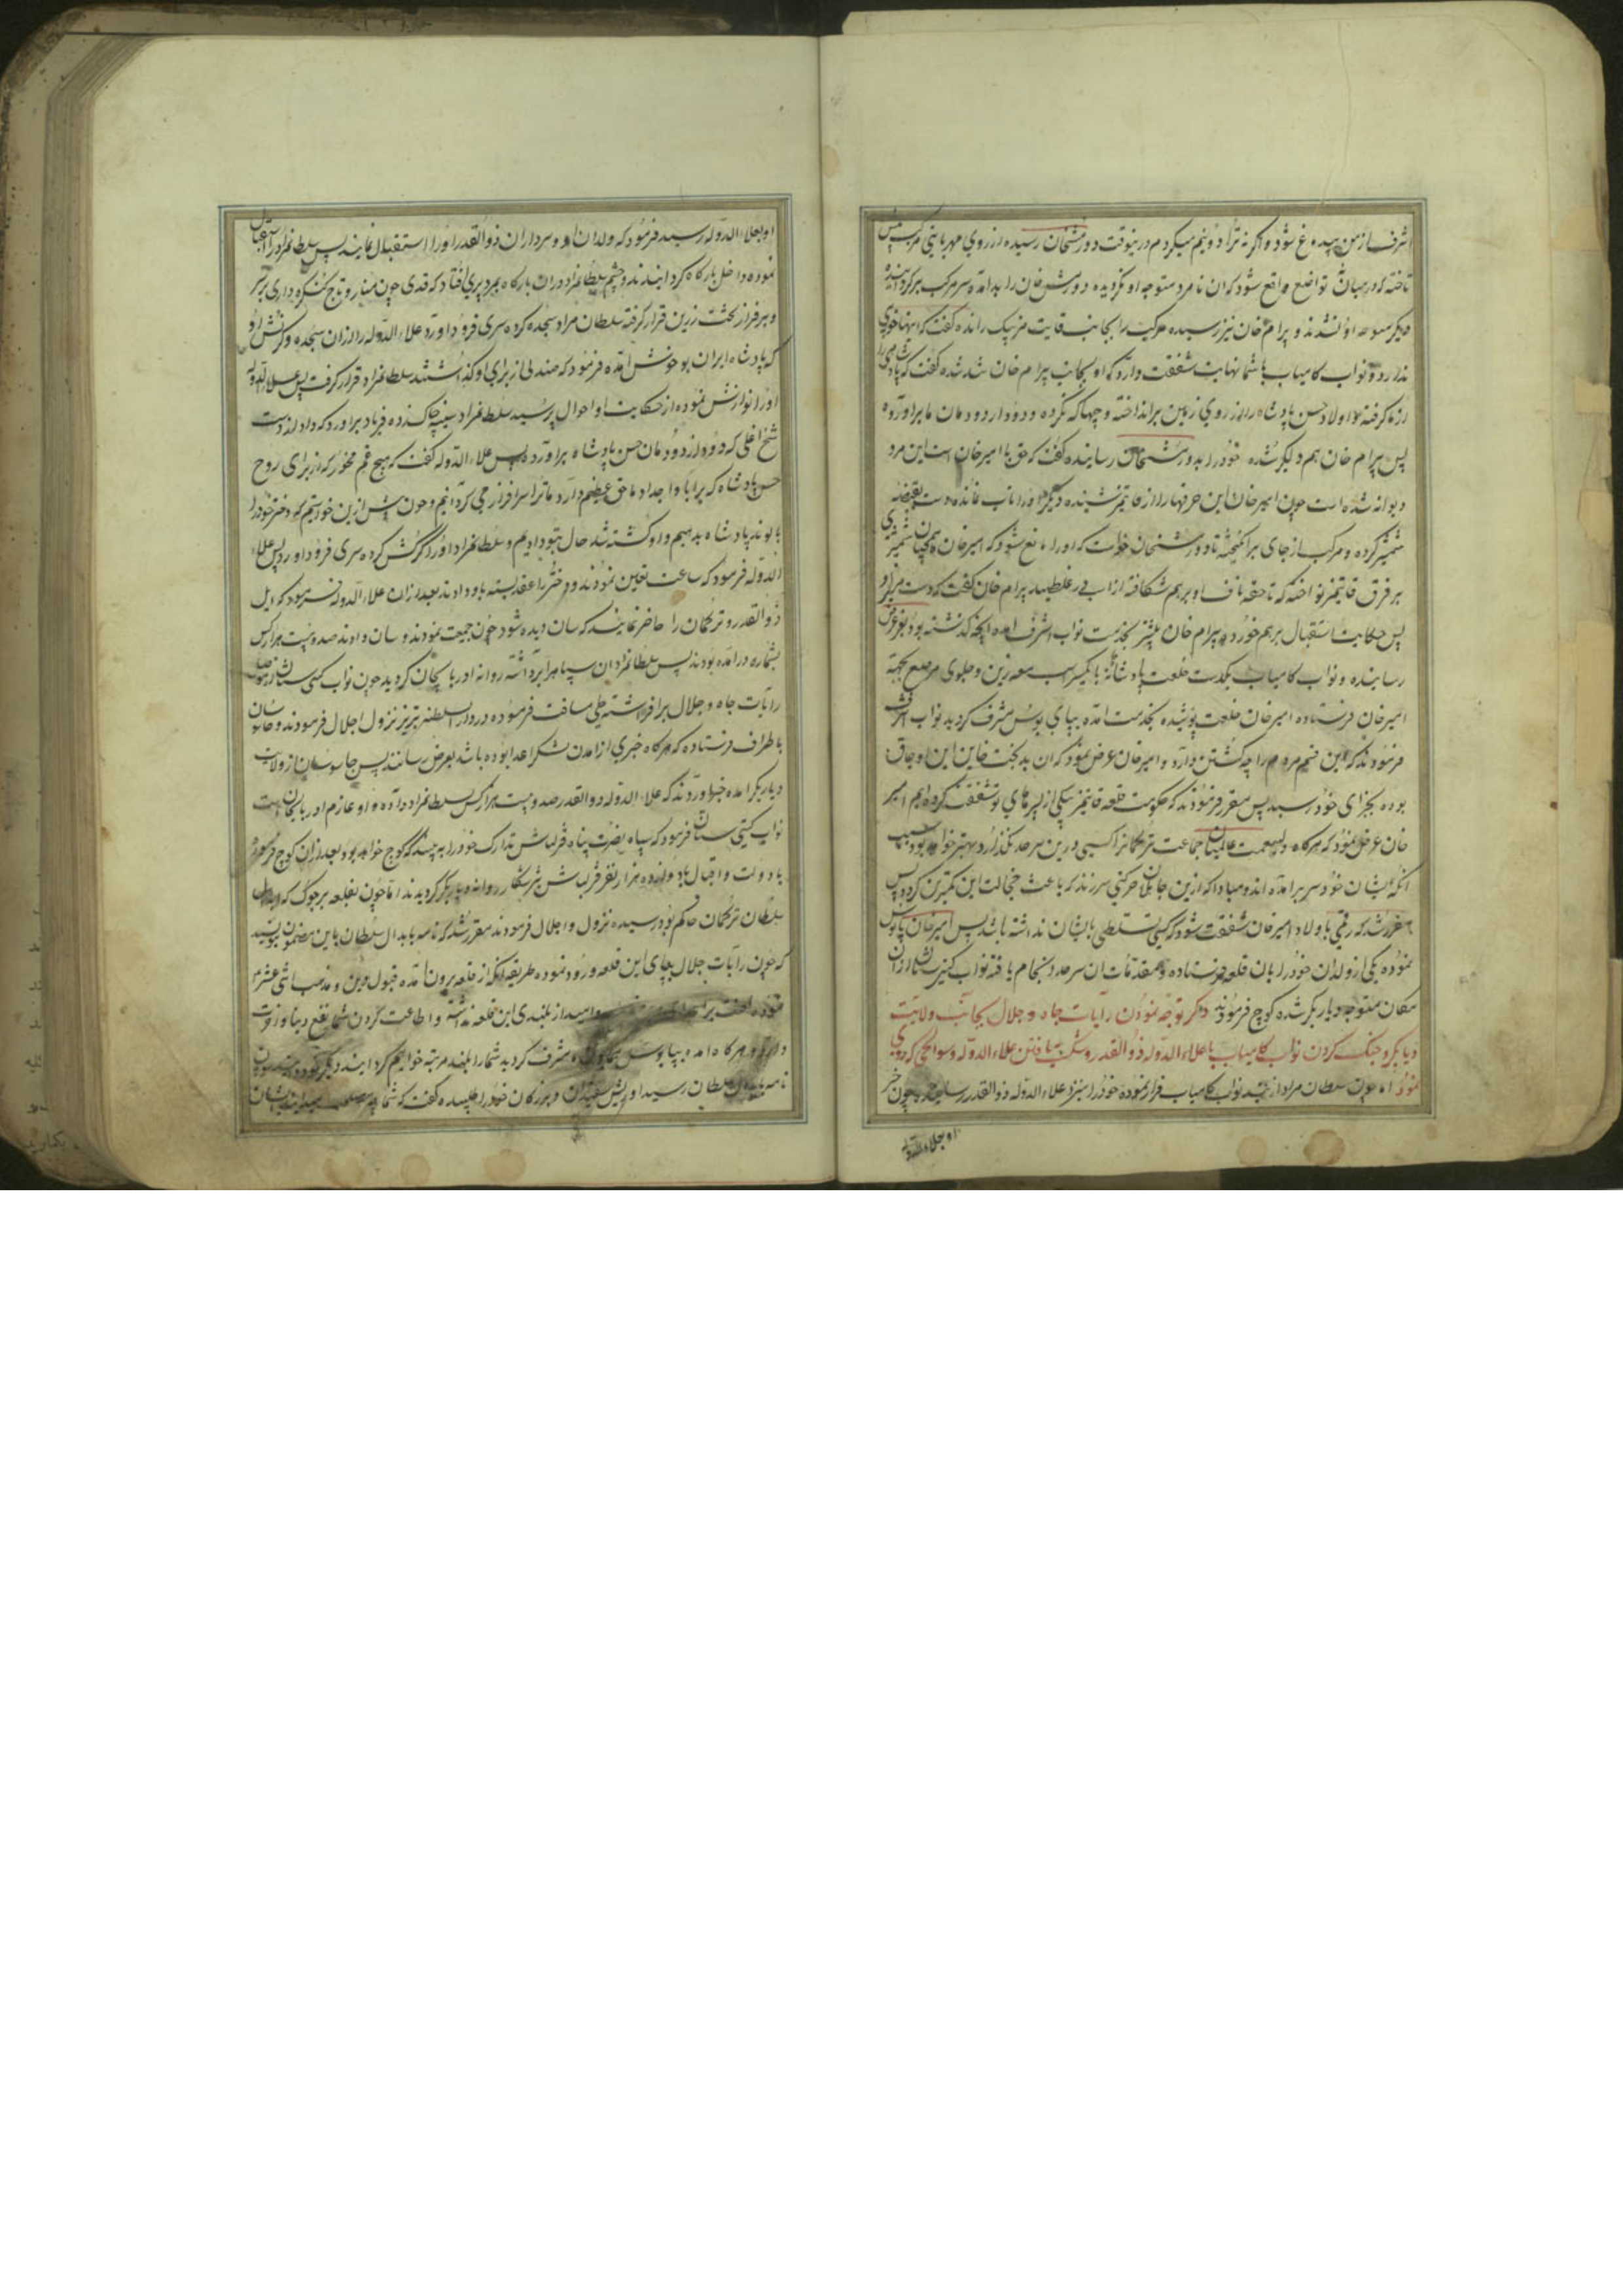 اشرف از من بیدماغ شود و اگر نه ترا دو نیم میکردم درینوقت دورمشخان رسیده از روی مهربانی مرکب پیش
تاخته که درمیان تواضع واقع شود که ان نامرد متوجه او نگردیده دورمش خان را بد امده سر مرکب برگردانیده
دیگر متوجه او نشدند و بیرام خان نیز رسیده مرکب را بجانب قایتمز بیک رانده گفت که اینها خوبی
ندارد و نواب کامیاب با شما نهایت شفقت دارد که او بجانب بیرام خان شد شده گفت که پادشاهی را
زماگرفته و اولاد حسن پادشاه را از روی زمین برانداخته و چها که نکرده و دود از دودمان ما براورده
پس بیرام خان هم دلگیر شده خود را بدورمشخان رسانیده گفت که حق با امیر خان است این مرد
دیوانه شده است چون امیرخان این حرفها را از قایتمز شنیده دیگر او را تاب نمانده دست بقبضه
شمشیر کرده و مرکب از جای برانگیخته تا دورمشخان خواست که او را مانع شود که امیر خان همچنان شمشیری
بر فرق قایتمز نواخته که تا حقه ناف او بر هم شکافته از اسب در غلطید بیرام خان گفت که دست مریزاد
پس حکایت استقبال بر هم خورده بیرام خان پیشتر بخدمت نواب اشرف امده انچه گذشته بود بعرض
رسانیده و نواب کامیاب یکدست خلعت پادشاهانه با یکسر اسب معه زین و جلوی مرصع بجهة
امیر خان فرستاده امیر خان خلعت پوشیده بخدمت امده بپای بوس مشرف گردید نواب اشرف
فرمودند که این فتح مردم را چه کشتن دارد و امیر خان عرض نمود که ان بدبخت خاین این اوجاق
بوده بجزای خود رسید پس مقرر فرمودند که حکومت قلعه قایتمز بیکی از پسرهای تو شفقت کرده ایم امیر
خان عرض نمود که هرگاه ولینعمت عالمیان جماعت ترکمانرا کسی درین سرحد نگذارد بهتر خواهد بود بسبب
انکه ایشان خود سر برامده اند و مبادا که ازین جاهلان حرکتی سر زند که باعث خجالت این کمترین گردد پس
مقرر شد که رقمی باولاد امیر خان شفقت شود که کسی تسلطی بایشان نداشته باشد پس امیر خان پابوس
نموده یکی از ولدان خود را بان قلعه فرستاده و مقدمات ان سرحد انجام یافته نواب گیتی ستان از ان
مکان متوجه دیاربکر شده کوچ فرمودند ذکر توجه نمودن رایات جاه و جلال بجانب ولایت
دیاربکر و جنگ کردن نواب کامیاب با علاء الدوله ذو القدر و شکست یافتن علاء الدوله و سوانحی که روی
نمود اما چون سلطان مراد از پیش نواب کامیاب فرار نموده خود را بنزد علاء الدوله ذو القدر رسانید و چون خبر
او بعلاء الدوله
او بعلاء الدوله رسید فرمود که ولدان او و سرداران ذو القدر او را استقبال نمایند پس سلطانمراد را استقبال
نموده داخل بارگاه گردانیدند و چشم سلطانمراد دران بارگاه بمرد پیری افتاد که قدی چون منار و تاج کنگره داری بر سر
و بر فراز تخت زرین قرار گرفته سلطان مراد سجده کرده سری فرود اورد علاء الدوله را از ان سجده و کرنش او
که پادشاه ایران بود خوش امده فرمود که صندلی از برای او گذاشتند سلطانمراد قرار گرفت پس علاء الدوله
او را نوازش نموده از حکایت او احوال پرسید سلطانمراد سینه چاک زده فریاد براورد که داد از دست
شیخ اغلی که دود از دودمان حسن پادشاه براورد پس علاء الدوله گفت که هیچ غم مخور که از برای روح
حسن پادشاه که بر ابا و اجداد ما حق عظیم دارد ما ترا سرافراز می گردانیم و چون پیش ازین خواستیم که دختر خود را
با لوند پادشاه بدهیم و او کشته شد حال بتو دادیم و سلطانمراد او را کرنش کرده سری فرود اورد پس علاء
الدوله فرمود که ساعت تعین نمودند و دختر را عقد بسته باو دادند بعد از ان علاء الدوله فرمود که ایل
ذو القدر و ترکمان را حاضر نمایند که سان دیده شود چون جمعیت نمودند و سان دادند صد و بیست هزار کس
بشماره درامده بودند پس سلطانمراد ان سپاه را برداشته روانه اذربایجان گردید چون نواب گیتی ستان از موصل
رایات جاه و جلال برافراشته طی مسافت فرموده در دار السلطنه تبریز نزول اجلال فرمودند و جاسوسان
باطراف فرستاده که هرگاه خبری از امدن لشکر اعدا بوده باشد بعرض رسانند پس جاسوسان از ولایت
دیاربکر امده خبر اوردند که علاء الدوله ذو القدر صد و بیست هزار کس بسلطانمراد داده و او عازم اذربایجان است
نواب گیتی ستان فرمود که سپاه نصرت پناه قزلباش تدارک خود را به بینند که کوچ خواهد بود بعد از ان کوچ فرموده
با دولت و اقبال با دوازده هزار نفر قزلباش شیر شکار روانه دیاربکر گردیدند اما چون بقلعه برجوک که ابدال
سلطان ترکمان حاکم بود رسیده نزول و اجلال فرمودند مقرر شد که نامه بابدال سلطان باین مضمون نویسند
که چون رایات جلال بپای این قلعه ورود نموده طریقه انکه از قلعه بیرون امده قبول دین و مذهب اثنی عشر
نموده لعنت بر و امید از بلندی این قلعه نداشته و اطاعت کردن شما نفع دنیا و اخرت
دارد و هرگاه امده بپابوس همایون مشرف گردید شما را بلند مرتبه خواهیم گردانید دیگر
نامه بابدال سلطان رسید او ریش سفیدان و بزرگان خود را طلبیده گفت که شما چه مصلحت میدانید ایشان